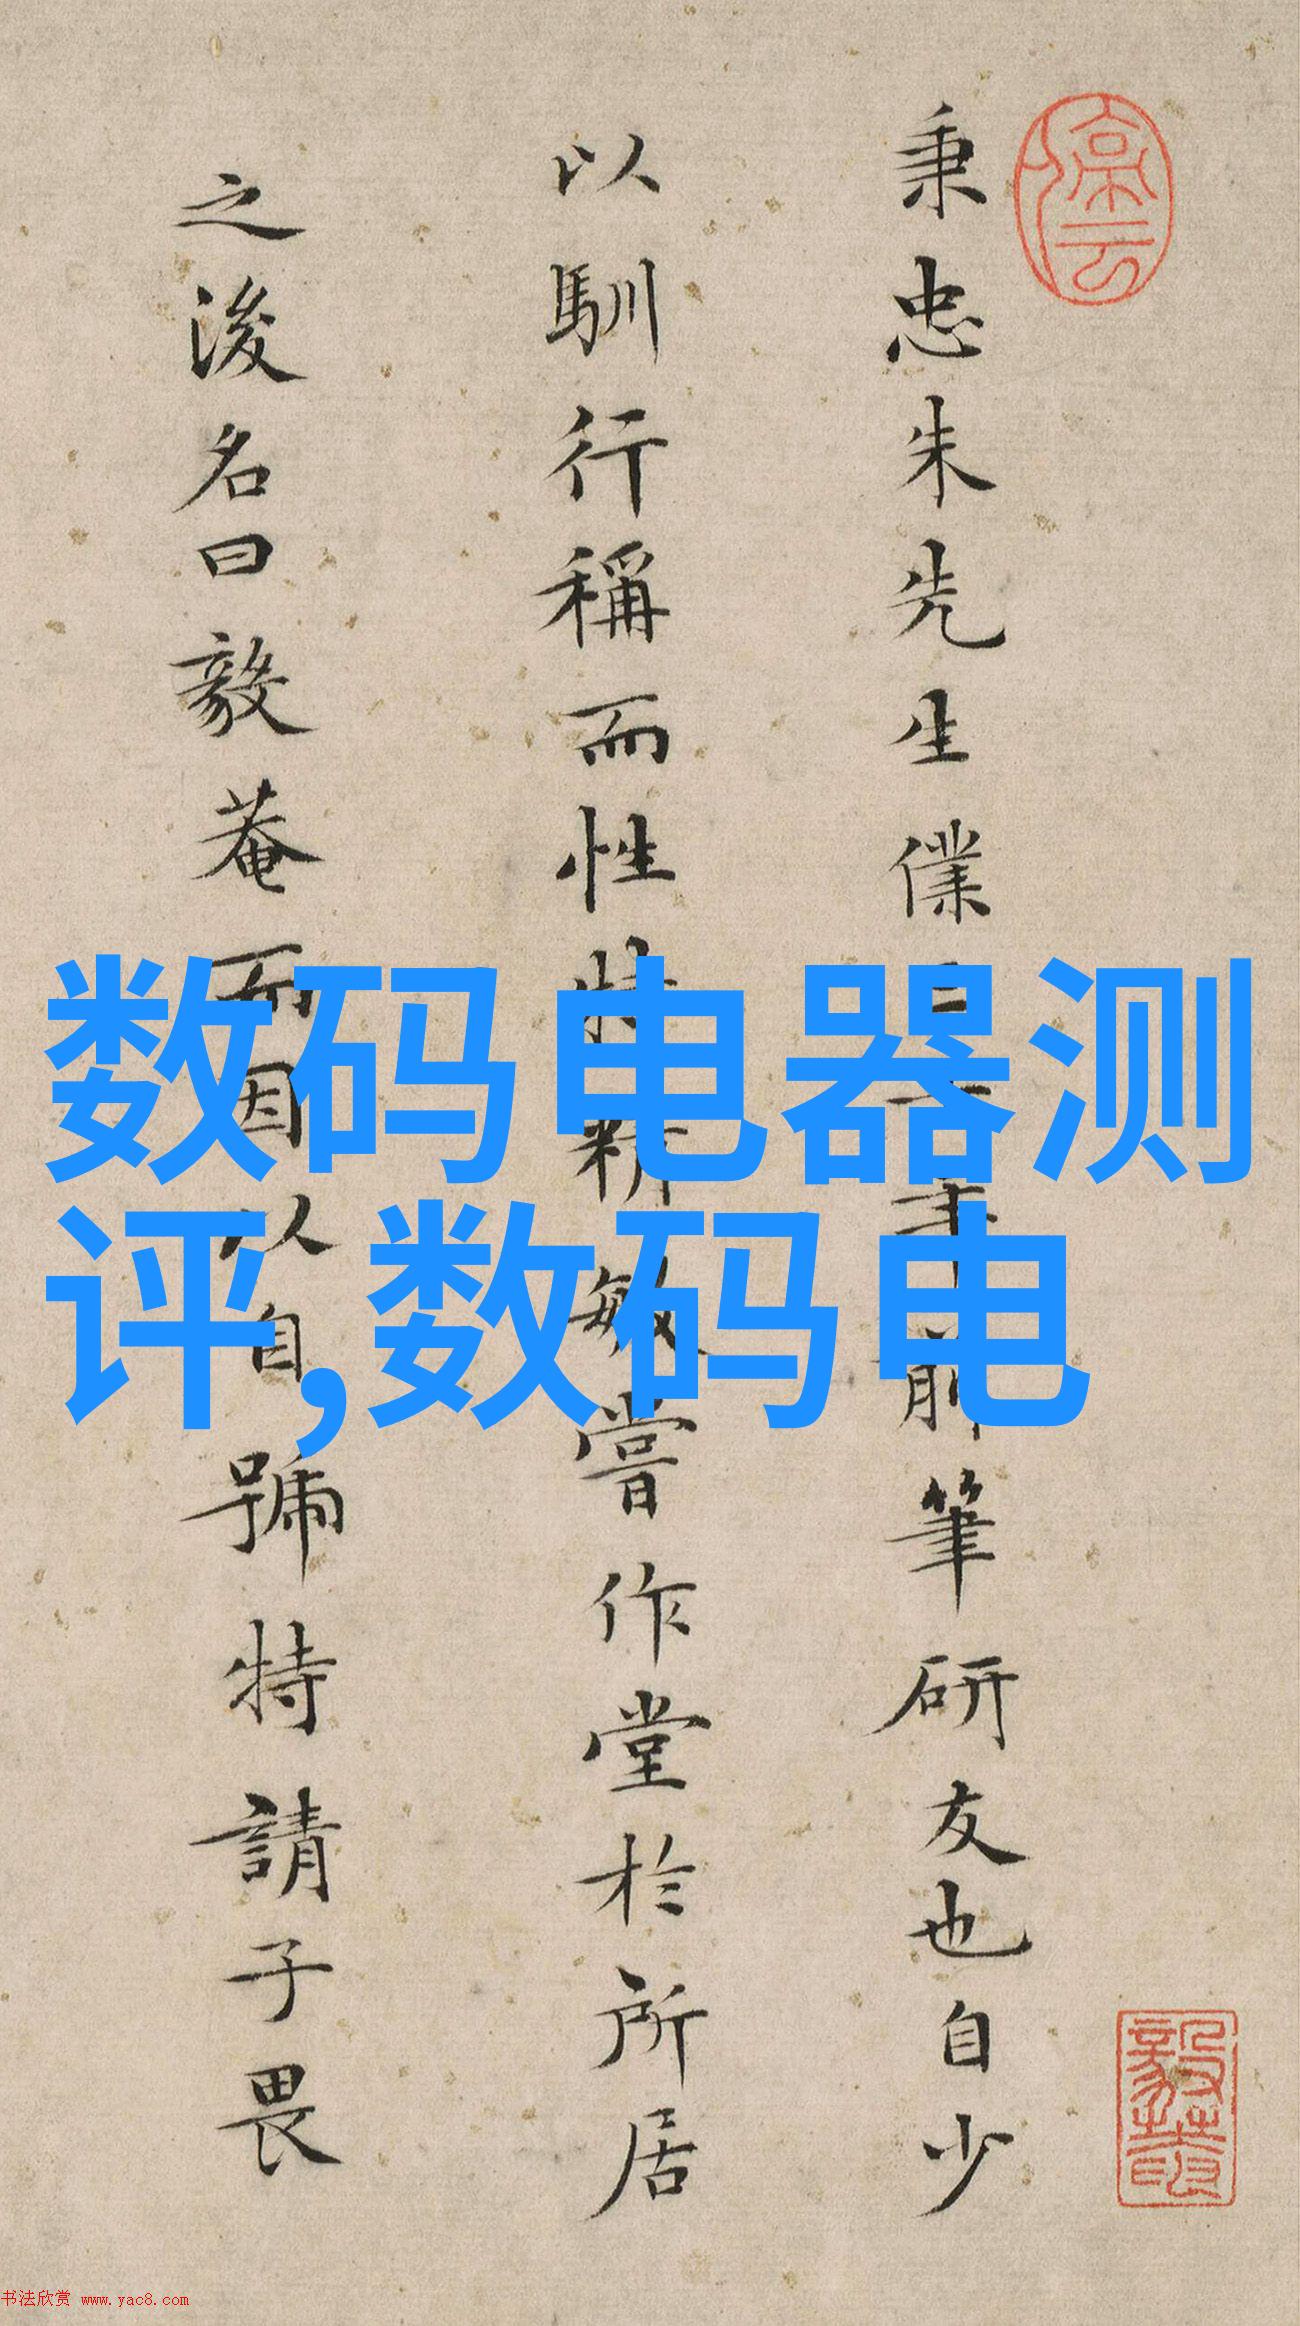 秉忠朱先生僕
筆研友也自少
以馴行稱而性
嘗作堂於所居
之後名曰毅菴而因以自號特請子畏
数码电器测
评,数码电
书法欣赏 www.yac8.com